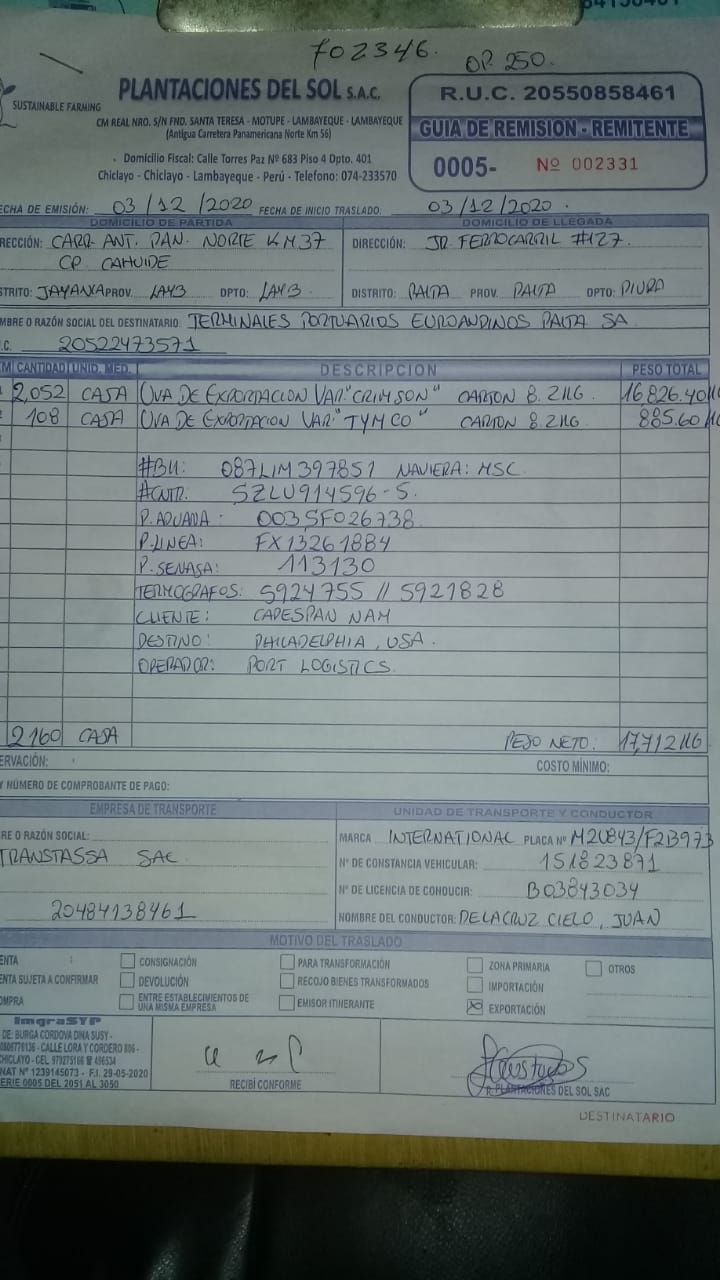 702346. OP. 250.
SUSTAINABLE FARMING
PLANTACIONES DEL SOL S.A.C.
CM REAL NRO. S/N FND. SANTA TERESA - MOTUPE - LAMBAYEQUE - LAMBAYEQUE
(Antigua Carretera Panamericana Norte Km 56)
Domicilio Fiscal: Calle Torres Paz Nº 683 Piso 4 Dpto. 401
Chiclayo - Chiclayo - Lambayeque - Perú - Telefono: 074-233570
R.U.C. 20550858461
GUIA DE REMISION - REMITENTE
0005- Nº 002331
ECHA DE EMISIÓN: 03/12/2020 FECHA DE INICIO TRASLADO: 03/12/2020.
DOMICILIO DE PARTIDA DOMICILIO DE LLEGADA
RECCIÓN: CARR ANT. PAN. NORTE KM37 DIRECCIÓN: JR FERROCARRIL #127.
CP CAHUIDE
STRITO: JAYANCA PROV. LAMB DPTO: LAMB. DISTRITO: PAITA PROV. PAITA DPTO: PIURA
MBRE O RAZÓN SOCIAL DEL DESTINATARIO: TERMINALES PORTUARIOS EUROANDINOS PAITA SA
.C. 20522473571
M CANTIDAD UNID. MED. DESCRIPCION PESO TOTAL
2,052 CAJA UVA DE EXPORTACION VAR: "CRIMSON" CARTON 8.2KG. 16,826.40KG
108 CAJA UVA DE EXPORTACION VAR: "TYMCO" CARTON 8.2KG 885.60KG
#BK: 087LIM397851 NAVIERA: MSC
#CNTR. SZLU914596-5.
P. ADUANA: 003SF026738
P. LINEA: FX13261884
P. SENASA: 113130
TERMOGRAFOS: 5924755 // 5921828
CLIENTE: CAPESPAN NAM
DESTINO: PHILADELPHIA, USA.
OPERADOR: PORT LOGISTICS.
2160 CAJA PESO NETO: 17,712KG
ERVACIÓN: COSTO MÍNIMO:
Y NÚMERO DE COMPROBANTE DE PAGO:
EMPRESA DE TRANSPORTE UNIDAD DE TRANSPORTE Y CONDUCTOR
RE O RAZÓN SOCIAL: MARCA INTERNATIONAL PLACA Nº M2U843/F2B973
TRANSTASSA SAC Nº DE CONSTANCIA VEHICULAR: 151823871
Nº DE LICENCIA DE CONDUCIR: B03843034
20484138461 NOMBRE DEL CONDUCTOR: DELACRUZ CIELO, JUAN
MOTIVO DEL TRASLADO
ENTA CONSIGNACIÓN PARA TRANSFORMACIÓN ZONA PRIMARIA OTROS
ENTA SUJETA A CONFIRMAR DEVOLUCIÓN RECOJO BIENES TRANSFORMADOS IMPORTACIÓN
OMPRA ENTRE ESTABLECIMIENTOS DE UNA MISMA EMPRESA EMISOR ITINERANTE EXPORTACIÓN
ImgraSYP
DE: BURGA CORDOVA DINA SUSY -
- CALLE LORA Y CORDERO 886 -
CHICLAYO - CEL 979275166
NAT Nº 1239145073 - F.I. 29-05-2020
ERIE 0005 DEL 2051 AL 3050
RECIBÍ CONFORME
P. PLANTACIONES DEL SOL SAC
DESTINATARIO